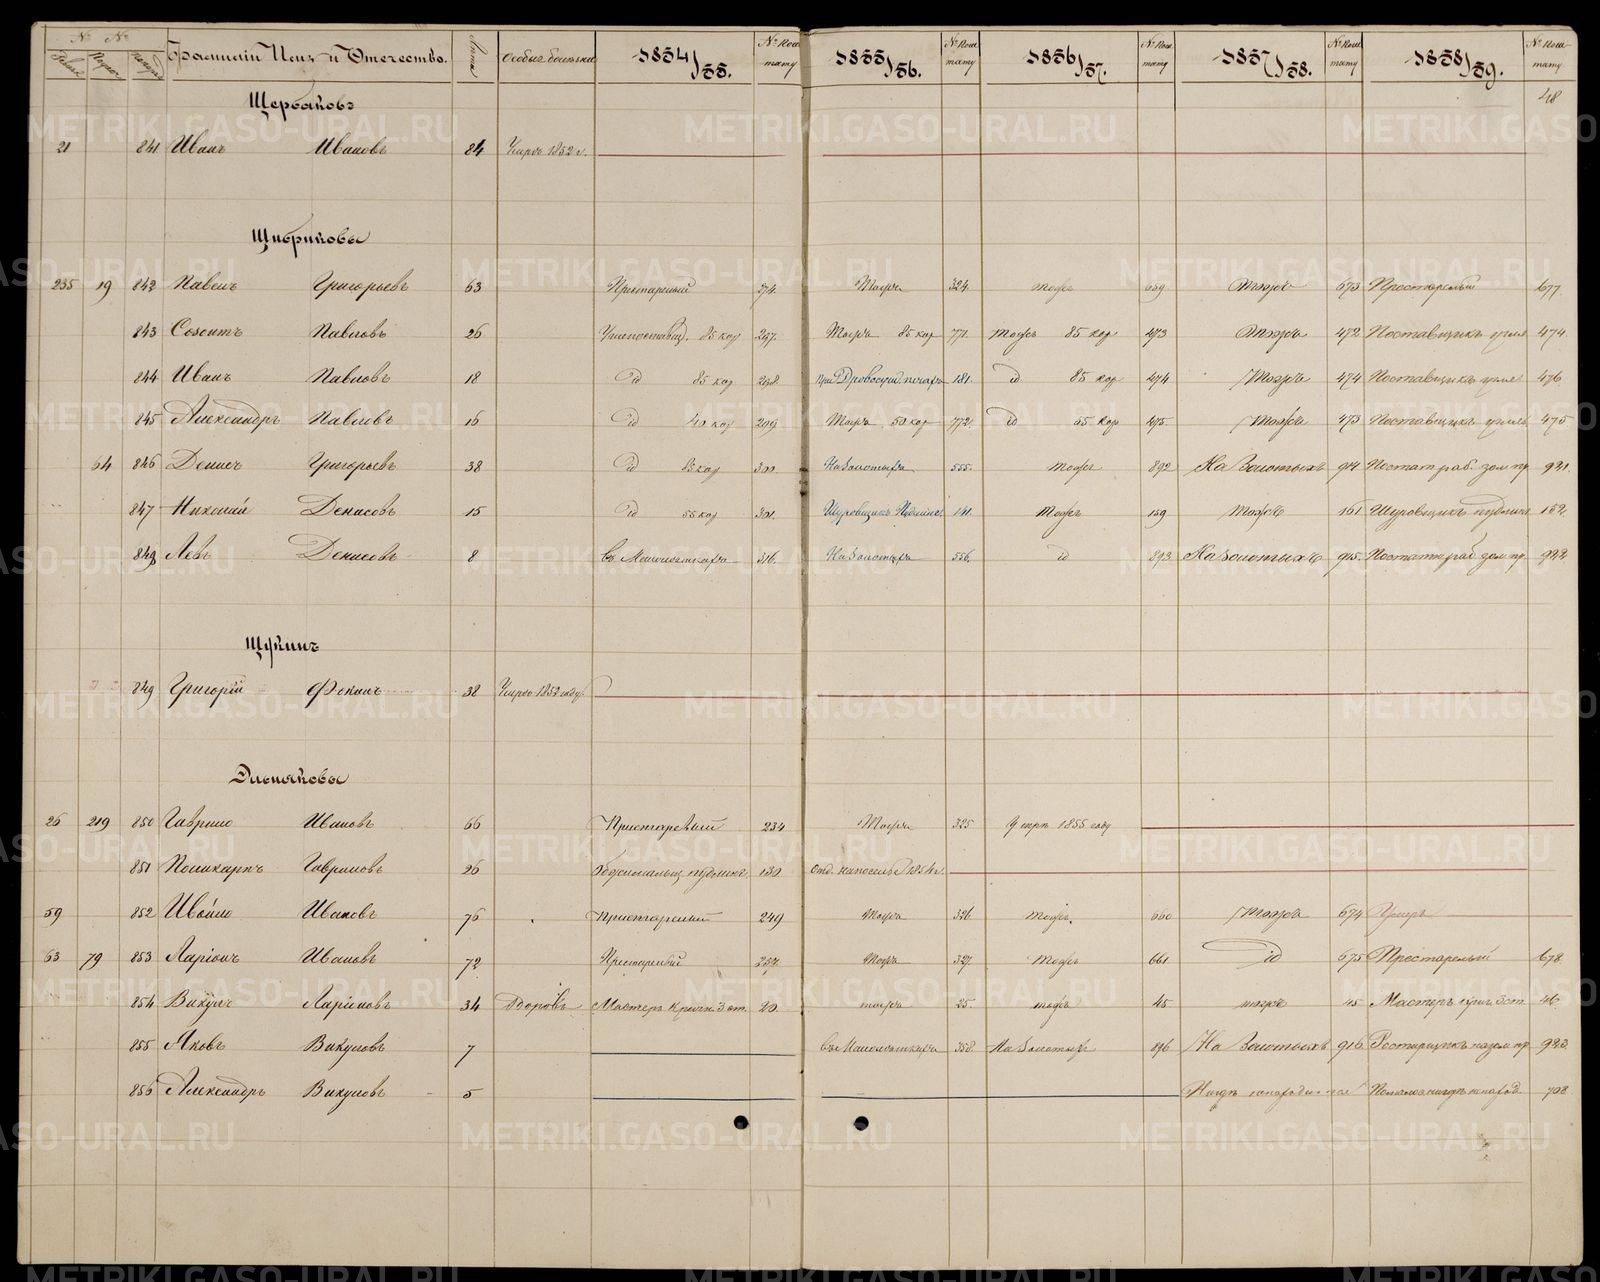 № №
Фамилiи Имя и Отечество.
Лета
1854/55.
№ Ком
тату
1855/56.
№ Ком
тату
1856/57.
№ Ком
тату
1857/58.
№ Ком
тату
1858/59.
№ Ком
тату
48
Щербаковъ
21 841 Иванъ Ивановъ 84 Умеръ 1852 г.
Щибриковы
235 19 842 Павелъ Григорьевъ 63 Престарелый 274. Тожъ 324. тожъ 659 Тожъ 673 Престарелый 677.
843 Созонтъ Павловъ 26 85 кор 267. Тожъ 85 кор 771. тожъ 85 кор 473 Тожъ 472 Поставщикъ угля 474.
844 Иванъ Павловъ 18 id 85 кор 268. при Дровосуш. печахъ 181. id 85 кор 474 Тожъ 474 Поставщикъ угля 476
845 Александръ Павловъ 16 id 40 кор 299 Тожъ 50 кор 772. id 65 кор 475 Тожъ 473 Поставщикъ угля 475
64 846 Денисъ Григорьевъ 38 id 85 кор 300 На Золотыхъ 555. тожъ 892 На Золотыхъ 914 Постат. раб. зол. пр. 921.
847 Николай Денисовъ 15 id 55 кор 301. Шуровщикъ Пудлинг. 141. тожъ 159 тожъ 161 Шуровщикъ пудлинг 152.
848 Левъ Денисовъ 8 въ Малолеткахъ 316. На Золотыхъ 556. id 893 На Золотыхъ 915. Постатн. раб. зол. пр. 922.
Щукинъ
849 Григорiй Фокинъ 38 Умеръ 1852 году.
Эльняковы
26 219 850 Гаврило Ивановъ 66 Престарелый 234 Тожъ 325 Умеръ 1855 году
851 Поликарпъ Гавриловъ 26 пудлинг. 130. Отд. на поселье 1854 г.
59 852 Ивойло Ивановъ 76 Престарелый 249 Тожъ 326 тожъ. 660 Тожъ 674 Умеръ
63 79 853 Ларiонъ Ивановъ 72 Престарелый 257. Тожъ 327. Тожъ 661 id 675 Престарелый 678.
854 Викулъ Ларiоновъ 34 Здоровъ Мастеръ кричн. 3 ст. 20. тожъ 25. тожъ 45 тожъ 45 Мастеръ крич. 3 ст. 46.
855 Яковъ Викуловъ 7 въ Малолеткахъ 358. На Золотыхъ 896 На Золотыхъ 916 на зол. пр. 923.
856 Александръ Викуловъ 5 708.